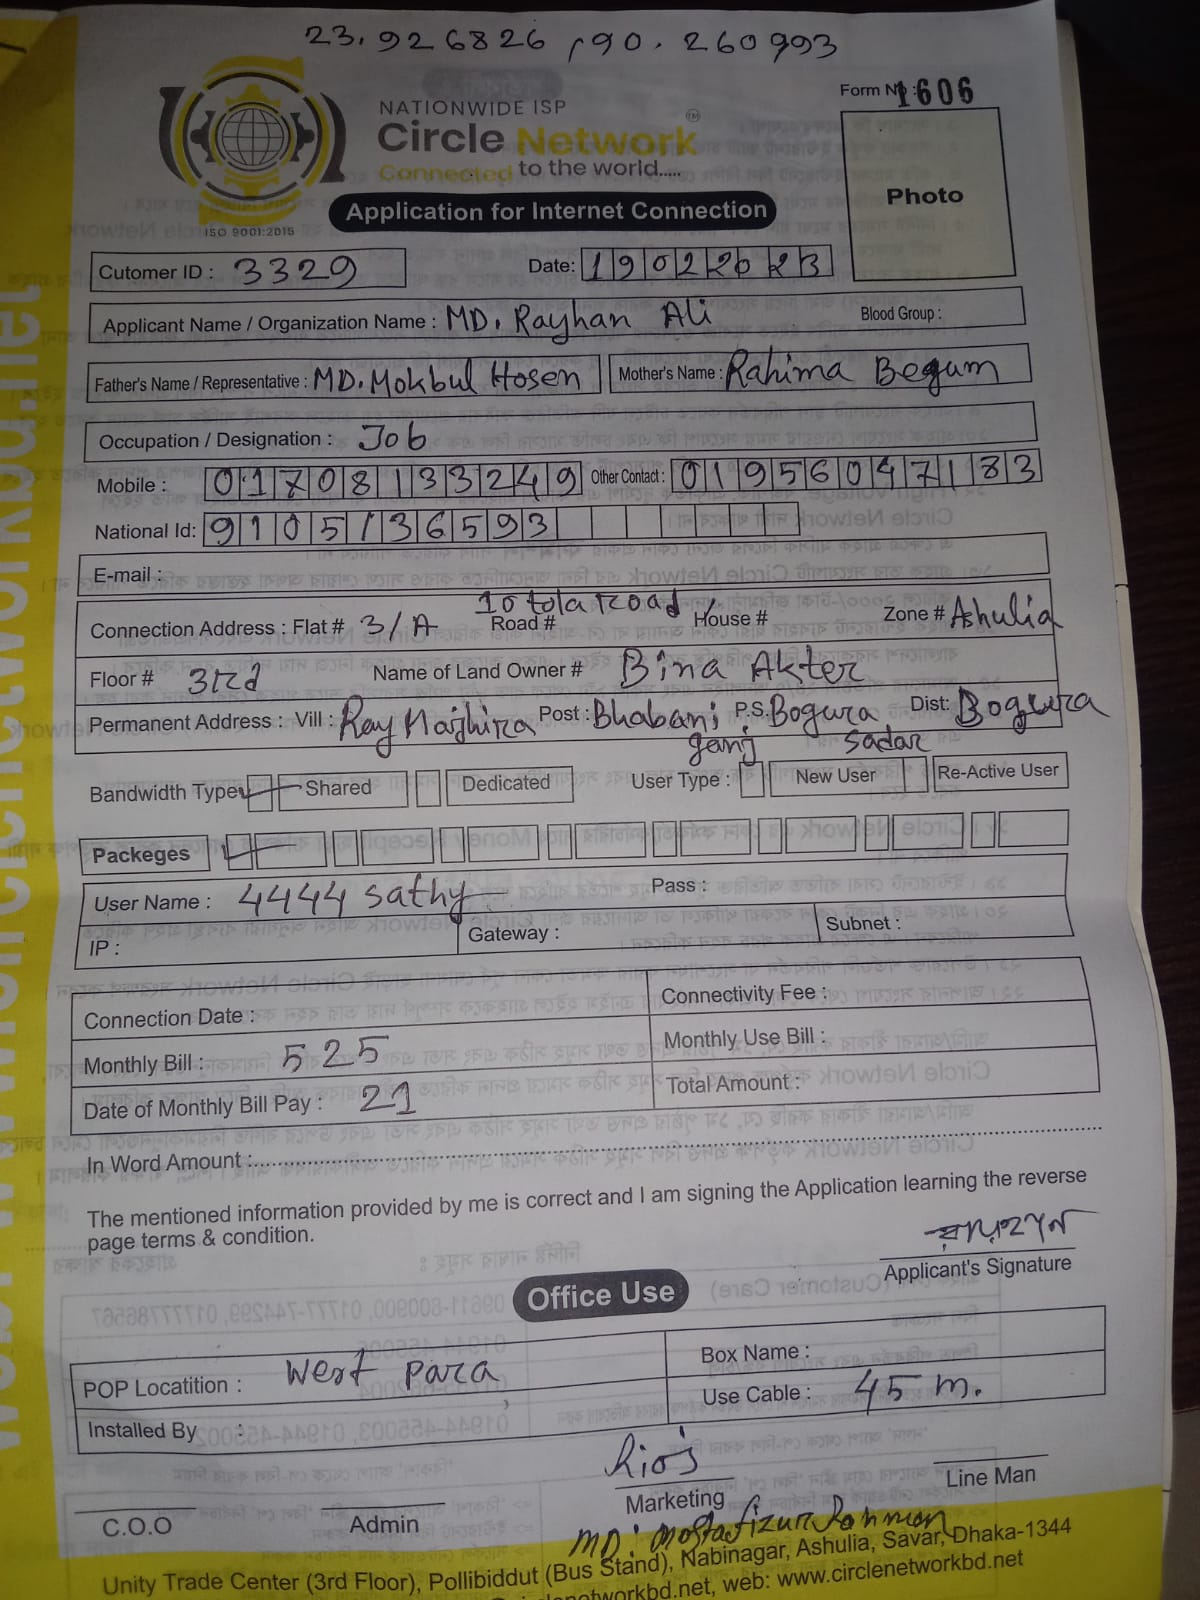 23.926826, 90.260993
Form No: 1606
NATIONWIDE ISP
Circle Network
TM
Connected to the world.....
ISO 9001:2015
Application for Internet Connection
Photo
Cutomer ID : 3329
Date: 19022023
Applicant Name / Organization Name : MD. Rayhan Ali Blood Group :
Father's Name / Representative : MD. Mokbul Hosen Mother's Name : Rahima Begum
Occupation / Designation : Job
Mobile : 01708133249 Other Contact : 01956047183
National Id: 9105136593
E-mail :
Connection Address : Flat # 3/A Road # 10 tola road, House # Zone # Ashulia
Floor # 3rd Name of Land Owner # Bina Akter
Permanent Address : Vill : Ray Majhira Post : Bhabani ganj P.S. Bogura sadar Dist: Bogura
Bandwidth Type Shared Dedicated User Type : New User Re-Active User
Packeges
User Name : 4444 sathy Pass :
IP : Gateway : Subnet :
Connection Date : Connectivity Fee :
Monthly Bill : 525 Monthly Use Bill :
Date of Monthly Bill Pay : 21 Total Amount :
In Word Amount :
The mentioned information provided by me is correct and I am signing the Application learning the reverse
page terms & condition.
রায়হান
Applicant's Signature
Office Use
POP Locatition : West para Box Name :
Installed By : Use Cable : 45 m.
C.O.O Admin Marketing Line Man
MD. Mostafizur Rahman
Unity Trade Center (3rd Floor), Pollibiddut (Bus Stand), Nabinagar, Ashulia, Savar, Dhaka-1344
networkbd.net, web: www.circlenetworkbd.net